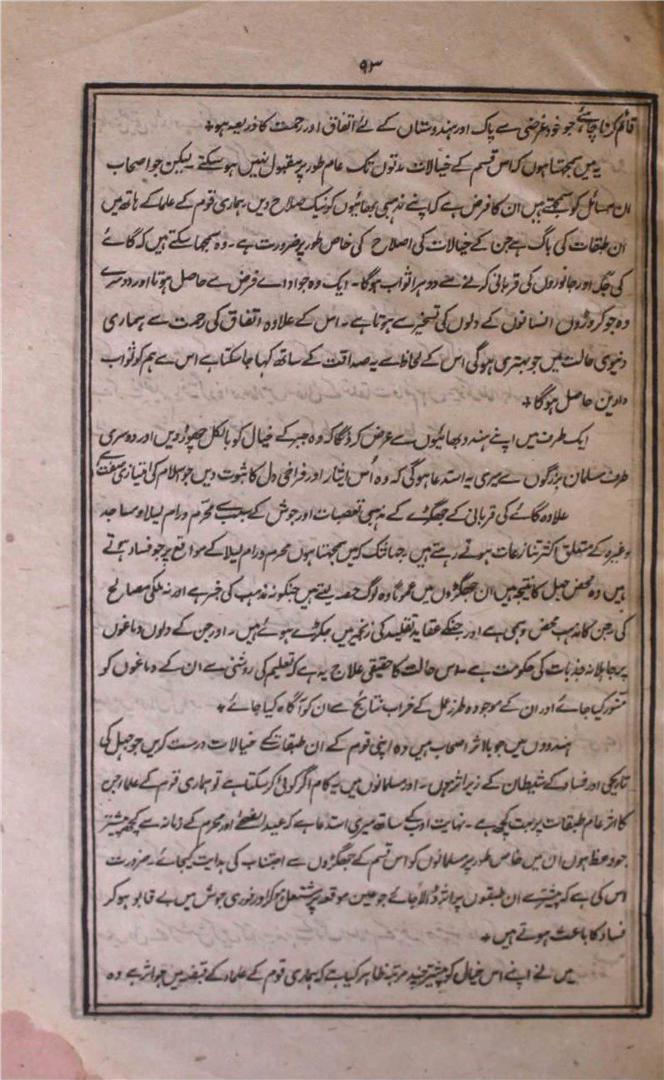 ۹۳
قائم کرنا چاہئے جو خودغرضی سے پاک اور ہندوستان کے لئے اتفاق اور رحمت کا ذریعہ ہو ؞
یہ میں سمجھتا ہوں کہ اس قسم کے خیالات مدتوں تک عام طور پر مقبول نہیں ہو سکتے ۔ لیکن جو اصحاب
ان مسائل کو سمجھتے ہیں ان کا فرض ہے کہ اپنے مذہبی بھائیوں کو نیک صلاح دیں ۔ ہماری قوم کے علما کے ہاتھ میں
اُن طبقات کی باگ ہے جن کے خیالات کی اصلاح کی خاص طور پر ضرورت ہے ۔ وہ سمجھا سکتے ہیں کہ گائے
کی جگہ اور جانوروں کی قربانی کرنے سے دوہرا ثواب ہوگا ۔ ایک وہ جو ادائے فرض سے حاصل ہوتا اور دوسرے
وہ جو کروڑوں انسانوں کے دلوں کی تسخیر سے ہوتا ہے ۔ اس کے علاوہ اتفاق کی رحمت سے ہماری
دنیوی حالت میں جو بہتری ہوگی اس کے لحاظ سے یہ صداقت کے ساتھ کہا جا سکتا ہے اس سے ہم کو ثواب
دارین حاصل ہوگا ؞
ایک طرف میں اپنے ہندو بھائیوں سے عرض کروں گا کہ وہ جبر کے خیال کو بالکل چھوڑ دیں اور دوسری
طرف مسلمان بزرگوں سے میری یہ استدعا ہوگی کہ وہ اُس ایثار اور فراخی دل کا ثبوت دیں جو اسلام کی امتیازی صفت ہے
علاوہ گائے کی قربانی کے جھگڑے کے مذہبی تعصبات اور جوش کے سبب سے محرّم و رام لیلا و مساجد
وغیرہ کے متعلق اکثر تنازعات ہوتے رہتے ہیں ۔ جہانتک کہ میں سمجھتا ہوں محرم و رام لیلا کے مواقع پر جو فساد ہوتے
ہیں وہ محض جہل کا نتیجہ ہیں ان جھگڑوں میں عموماً وہ لوگ حصہ لیتے ہیں جنکو نہ مذہب کی خبر ہے اور نہ ملکی مصالح
کی ۔ جن کا مذہب محض وہمی ہے اور جنکے عقاید تقلید کی زنجیر میں جکڑے ہوئے ہیں ۔ اور جن کے دلوں و دماغوں
پر جاہلانہ جذبات کی حکومت ہے ۔ اس حالت کا حقیقی علاج یہ ہے کہ تعلیم کی روشنی سے ان کے دماغوں کو
منوّر کیا جائے اور ان کے موجودہ طرز عمل کے خراب نتائج سے ان کو آگاہ کیا جائے ؞
ہندووں میں جو بااثر اصحاب ہیں وہ اپنی قوم کے ان طبقات کے خیالات درست کریں جو جہل کی
تاریکی اور فساد کے شیطان کے زیر اثر ہوں ۔ اور مسلمانوں میں یہ کام اگر کوئی کر سکتا ہے تو ہماری قوم کے علما جن
کا اثر عام طبقات پر بہت کچھ ہے ۔ نہایت ادب کے ساتھ میری استدعا ہے کہ عیدالضحیٰ اور محرم کے زمانہ سے کچھ پیشتر
جو وعظ ہوں ان میں خاص طور پر مسلمانوں کو اس قسم کے جھگڑوں سے اجتناب کی ہدایت کیجائے ۔ ضرورت
اس کی ہے کہ پیشتر سے ان طبقوں پر اثر ڈالا جائے جو عین موقعہ پر مشتعل ہو کر اور فوری جوش میں بے قابو ہو کر
فساد کا باعث ہوتے ہیں ؞
میں نے اپنے اس خیال کو پیشتر چند مرتبہ ظاہر کیا ہے کہ ہماری قوم کے علماء کے قبضہ میں جو اثر ہے وہ